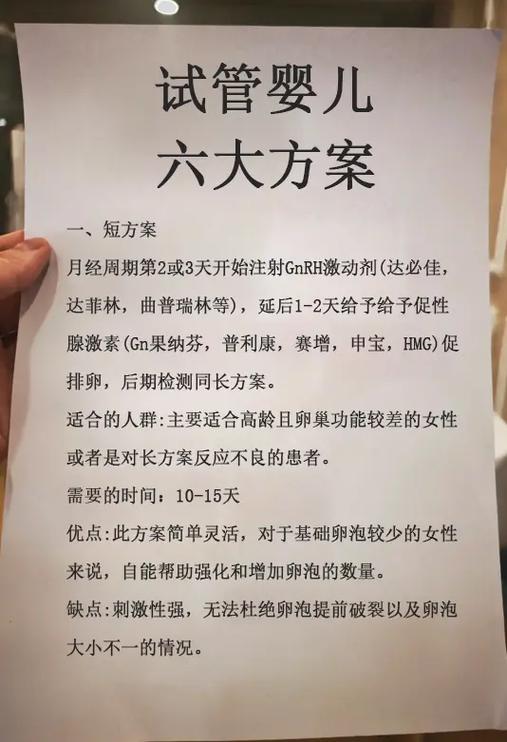 试管婴儿
六大方案
一、短方案
月经周期第2或3天开始注射GnRH激动剂(达必佳，
达菲林，曲普瑞林等)，延后1-2天给予给予促性
腺激素(Gn果纳芬，普利康，赛增，申宝，HMG)促
排卵，后期检测同长方案。
适合的人群:主要适合高龄且卵巢功能较差的女性
或者是对长方案反应不良的患者。
需要的时间：10-15天
优点:此方案简单灵活，对于基础卵泡较少的女性
来说，自能帮助强化和增加卵泡的数量。
缺点:刺激性强，无法杜绝卵泡提前破裂以及卵泡
大小不一的情况。